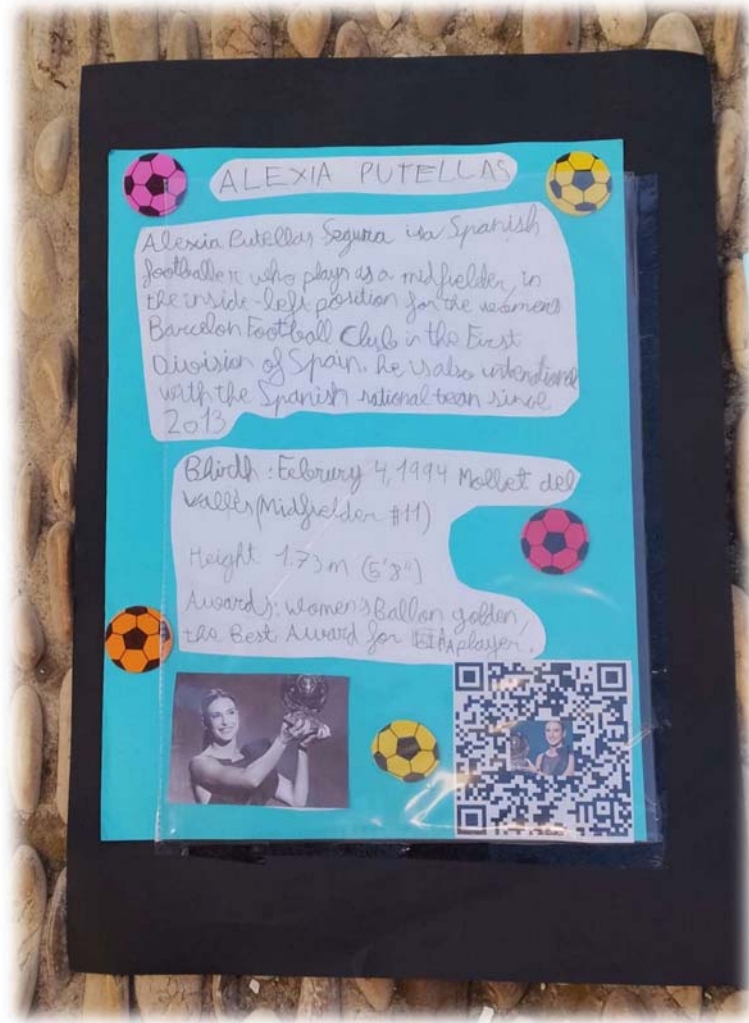 ALEXIA PUTELLAS
Alexia Putellas Segura is a Spanish
footballer who plays as a midfielder, in
the inside-left position for the women's
Barcelon Football Club in the First
Division of Spain. he is also
with the Spanish national team since
2013
Bhirth: February 4, 1994 Mollet del
Vallès (Midfielder #11)
Height 1.73m (5'8")
Awards: women's Ballon golden,
the Best Award for FIFA player.